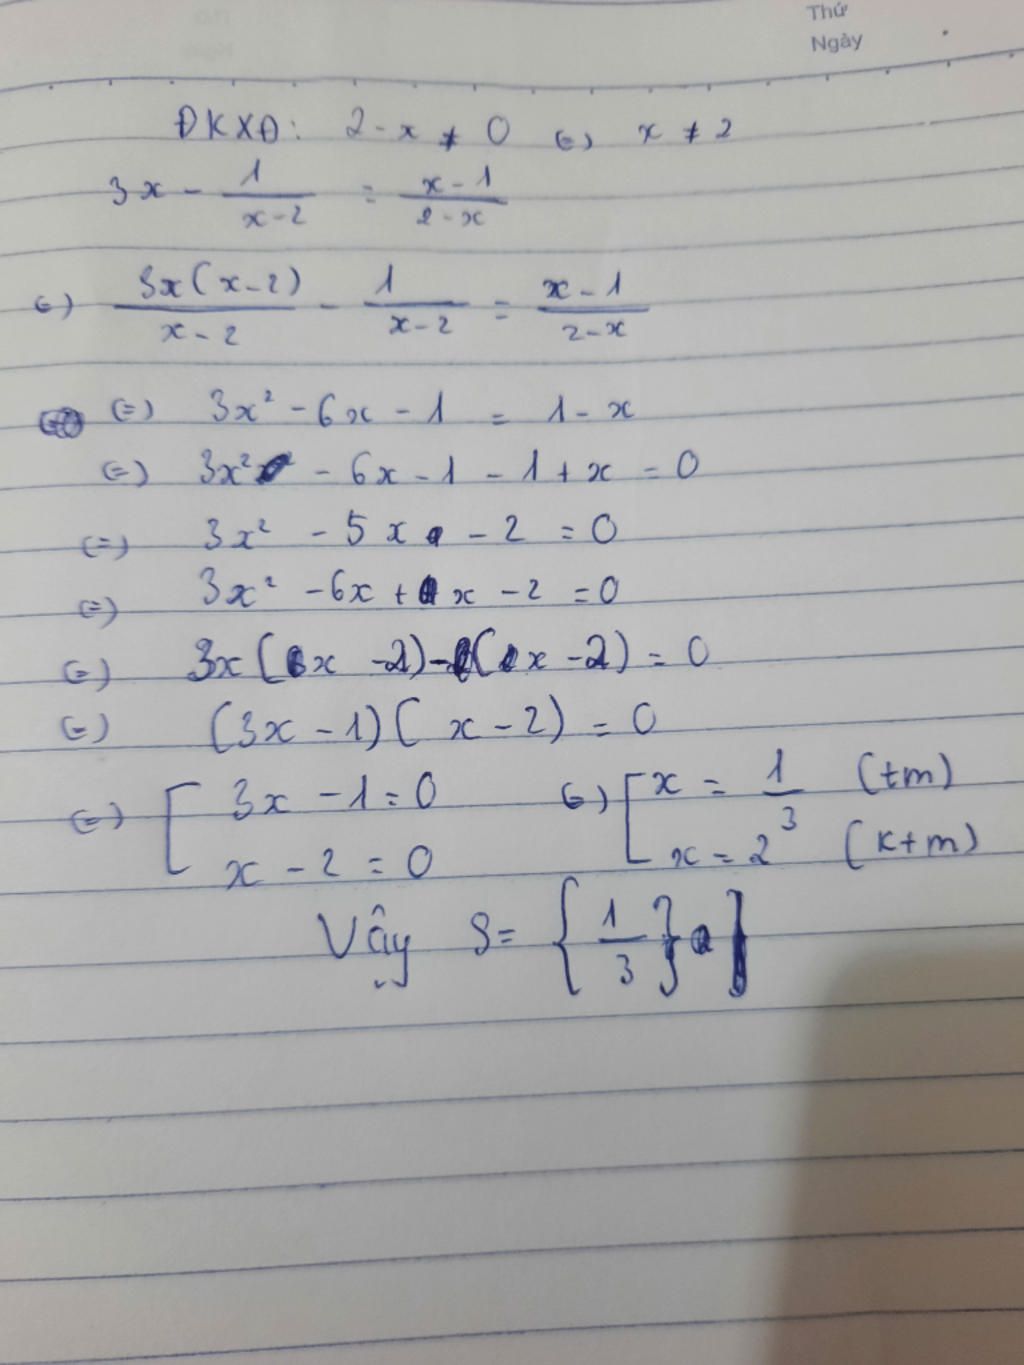 Thứ
Ngày
ĐKXĐ: 2-x ≠ 0 (=) x ≠ 2
3x - 1/(x-2) = (x-1)/(2-x)
(=) 3x(x-2)/(x-2) - 1/(x-2) = (x-1)/(2-x)
(=) 3x² - 6x - 1 = 1 - x
(=) 3x² - 6x - 1 - 1 + x = 0
(=) 3x² - 5x - 2 = 0
(=) 3x² - 6x + x - 2 = 0
(=) 3x(x - 2) - (x - 2) = 0
(=) (3x - 1)(x - 2) = 0
(=) [ 3x - 1 = 0 (=) [ x = 1/3 (tm)
x - 2 = 0 x = 2 (ktm)
Vậy S = {1/3}